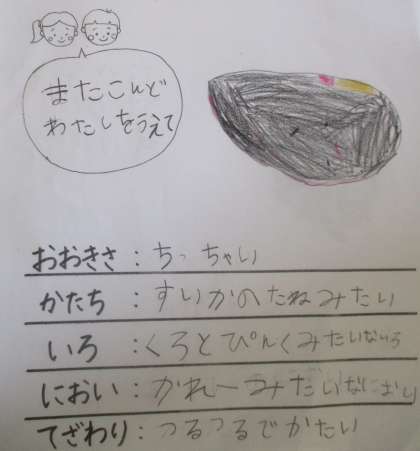 またこんど
わたしをうえて
おおきさ：ちっちゃい
かたち：すいかのたねみたい
いろ：くろとぴんくみたいないろ
におい：かれーみたいなにおい
てざわり：つるつるでかたい